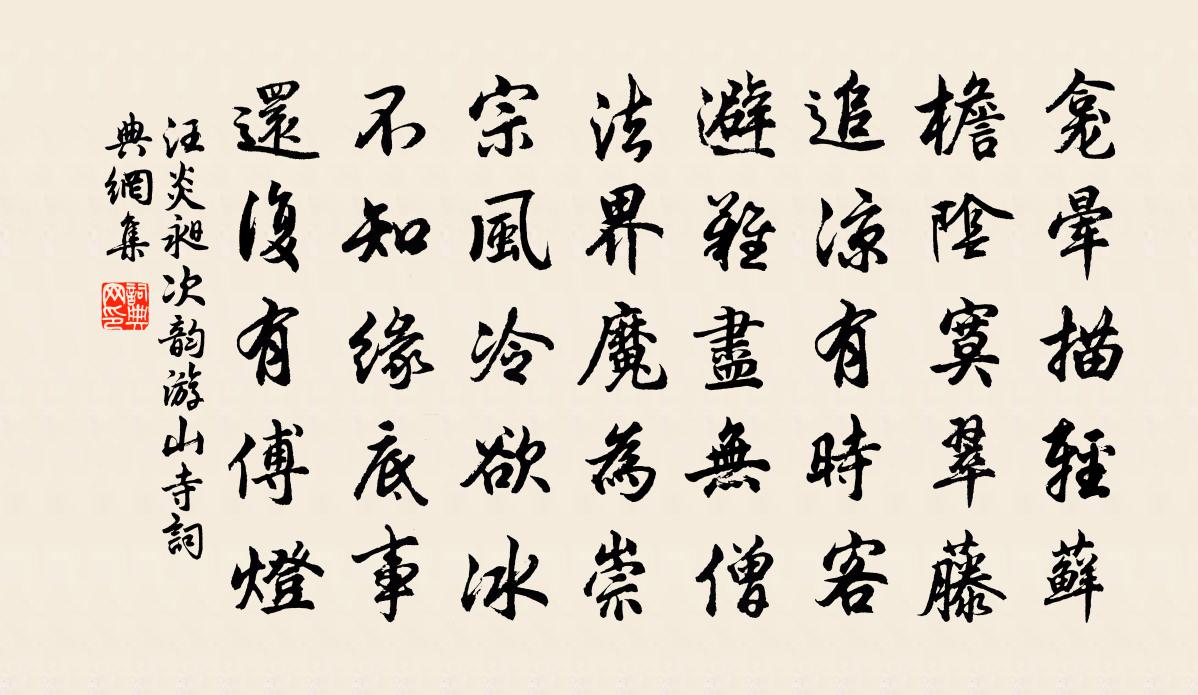 龕暈描輕蘚
檐陰寞翠藤
追涼有時客
避難盡無僧
法界魔為崇
宗風冷欲冰
不知緣底事
還復有傅燈
汪炎昶次韵游山寺詞
典網集
詞典网印